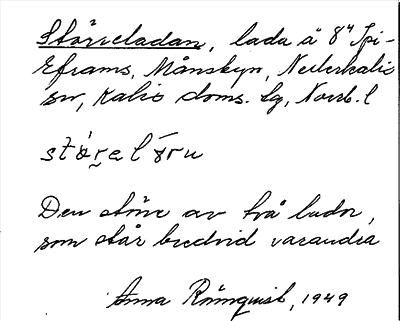 Störreladan, lada å 8⁴ Spi-
Eframs, Månsbyn, Nederkalix
sn, Kalix doms. lg, Norrb. l
Den större av två lador,
som står bredvid varandra
Anna Rönnquist, 1949